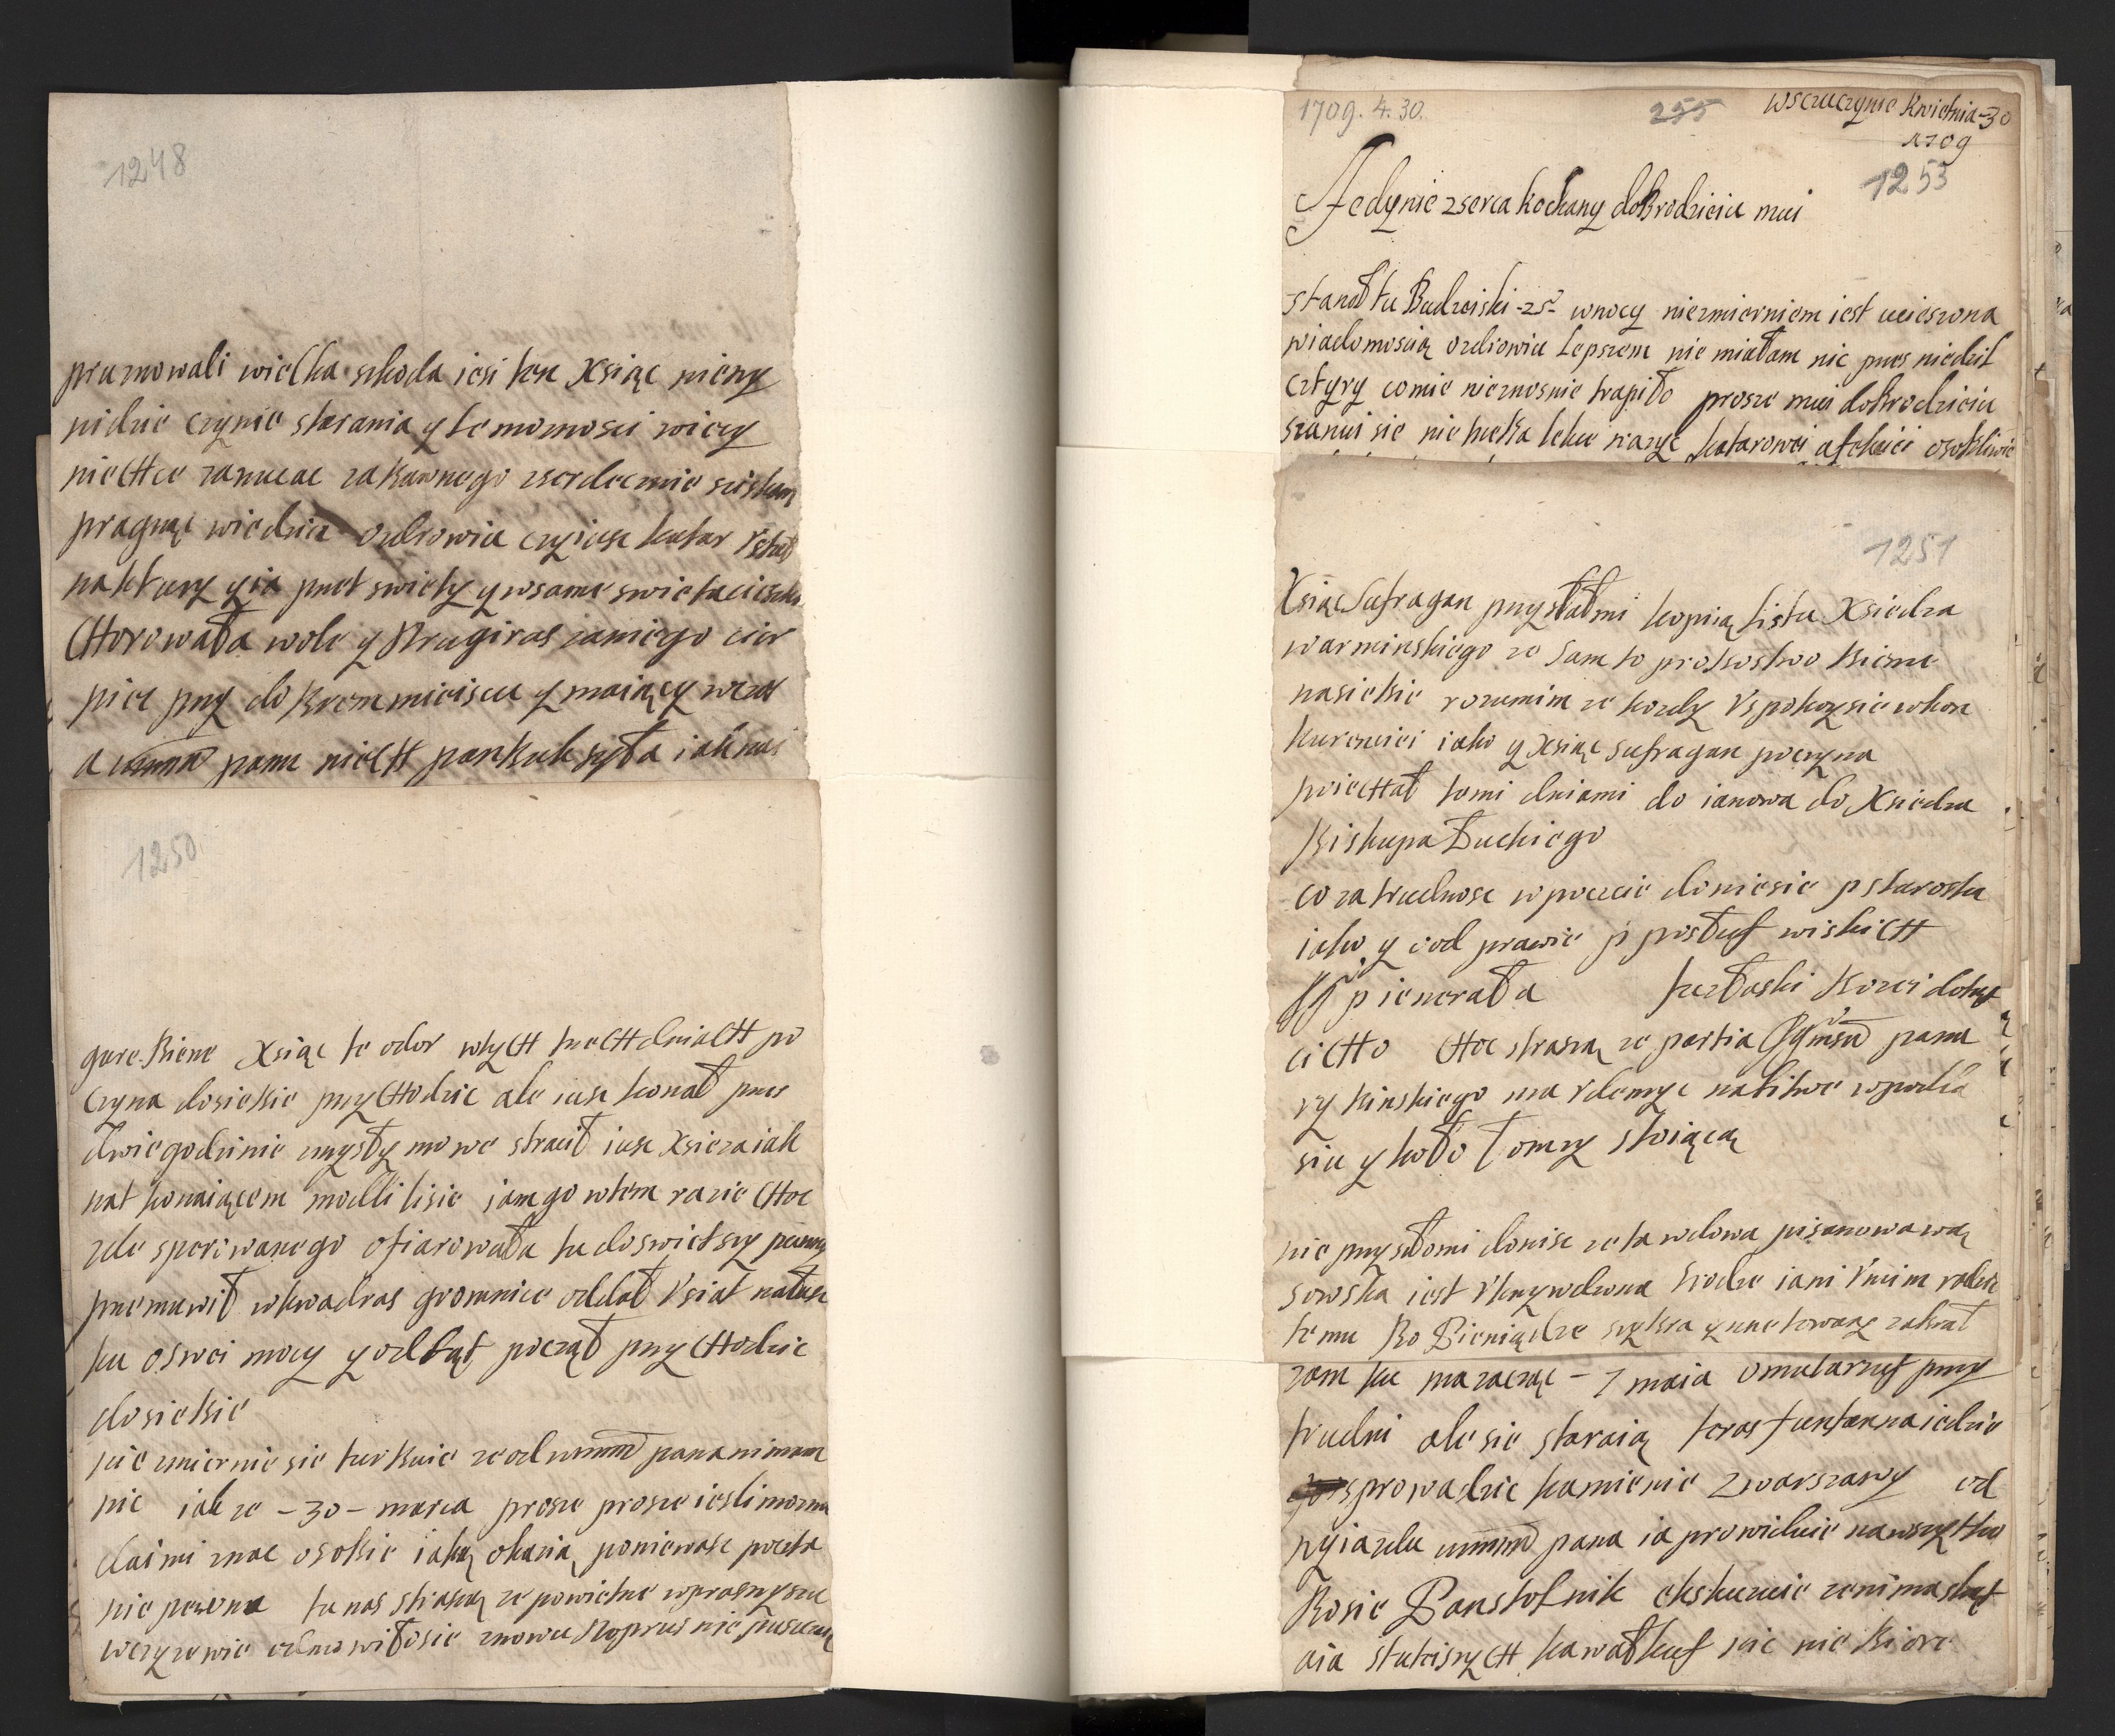 1248
prumowali wielka szkoda iesi ten Xsiąc nicny
nidzie czynie starania y te momosci wiczy
nieCHce zanucac zabawnego zserdecnie sciskam
pragnąc wiedziec ozdrowiu czyiusz katar Vstał
naktury yia puet swiety y wsame swieta
CHorowała wole y Drugiras zaniego cier
piec pny dobrem mieiscu y maiący wczas
a wmm pana nieCH pankuk syła iak nai
1250
gure. Biene Xsiąc te odor wtyCH tneCHdniaCH po
czyna dosiebie pnyCHodzic ale iusz konał pnes
dwie godzinie zmysły mowe stracił iusz Xsieza iak
nat konaiącem modli lisie iam go wtem razie CHoc
zde sperowanego ofiarowała tu do swietszy panny
pnemuwił wkwadras gromnice oddał Vsiat nałusz
ku oswei mocy y odtąt począł pnyCHodzic
dosiebie
nie zmiernie sie turbuie ze od wmm pana nimam
nic iak ze - 30 - marca prosze prosze iesli mozna
daimi znac osobie iaką okazią poniewasz poczta
nie pewna tu nas straszą ze powietne wprasnyszu
wczyzewie odnowiłosie znowu Doprus nie puszczaią
1709. 4. 30.
255
wsczuczynie Kwietnia-30
1709
1253
Jedynie zserca kochany dobrodzieiu mui
stanoł tu Budzeiski -25- wnocy niezmierniem iest ucieszona
wiadomoscią ozdrowiu Lepszem nie miałam nic pnes niedzil
cztyry comie nieznosnie trapiło prosze mui dobrodzieiu
szanui sie nie tneba lekce wazyc katarowei afekcici osobliwie
1251
Xsiąc Sufragan pnysłałmi kopią Listu Xsiedza
warminskiego ze Sam to probostwo Bieme
nasiebie rozumim ze kozdy Vspokoysie wkon
kurenciei iako y Xsiąc sufragan poczyna
poieCHał temi dniami do ianowa do Xsiedza
Biskupa Łuckiego
co za trudnosc wpoczcie doniesie p starosta
iako y iod prawie p posłuf wiskiCH
JJ p ienerała tuzłaski Bozei dotąt
ciCHo CHoc straszą ze partia Jgmsci pana
rybinskiego ma Vdemyc nabitwe wpodla
siu y koło Łomzy stoiącą
nie pnysłomi donise ze ta wdowa pisanowa wą
sowska iest Vknywdzona srodze iani Vmim radzic
temu Bo Pieniądze szybra y une towary zabrał
zam tu ma zacząc - 7 maia omularuf pny
trudni ale sie staraią teras funtanna iedzie
sprowadzic kamienie zwarszawy od
wyiazdu wmm pana ia prowiduie nawszytko
Bosie Panstolnik ekskuzuie zenima skąt
aia stuteiszyCH kawałkuf nic nie Biore